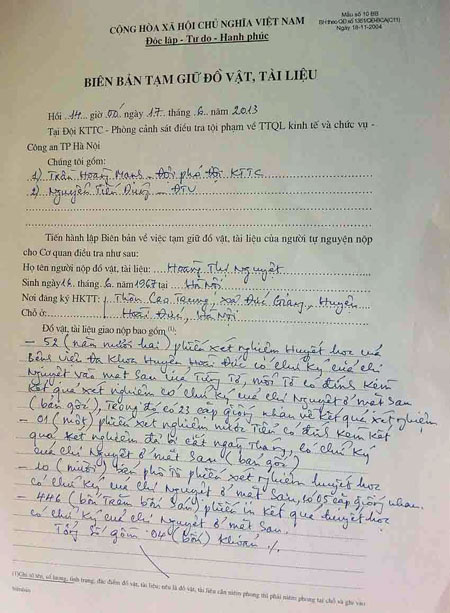 Mẫu số 10 BB
BH theo QĐ số 1351/QĐ-BCA(C11)
Ngày 18-11-2004
CỘNG HÒA XÃ HỘI CHỦ NGHĨA VIỆT NAM
Độc lập - Tự do - Hạnh phúc
BIÊN BẢN TẠM GIỮ ĐỒ VẬT, TÀI LIỆU
Hồi 14 giờ 00 ngày 17 tháng 6 năm 2013
Tại Đội KTTC - Phòng cảnh sát điều tra tội phạm về TTQL kinh tế và chức vụ -
Công an TP Hà Nội
Chúng tôi gồm:
1) Trần Hoàng - Đội phó đội KTTC
2) Nguyễn Tiến - ĐTV
Tiến hành lập Biên bản về việc tạm giữ đồ vật, tài liệu của người tự nguyện nộp
cho Cơ quan điều tra như sau:
Họ tên người nộp đồ vật, tài liệu: Hoàng Thị Nguyệt
Sinh ngày 16 tháng 6 năm tại Hà Nội
Nơi đăng ký HKTT: Thôn Cao Trung, xã Đức Giang, Huyện
Chỗ ở: Hoài Đức, Hà Nội
Đồ vật, tài liệu giao nộp bao gồm (1):
- 52 (năm mươi hai) phiếu xét nghiệm Huyết học của
Bệnh viện Đa Khoa Huyện Hoài Đức có chữ ký của chị
Nguyệt vào mặt sau của từng tờ, mỗi tờ có đính kèm
Kết quả xét nghiệm có chữ ký của chị Nguyệt ở mặt sau
(bản gốc), Trong đó có 23 cặp giống nhau về kết quả xét nghiệm
- 01 (một) phiếu xét nghiệm nước Tiểu có đính kèm kết
quả xét nghiệm đã bị cắt ngày tháng, có chữ ký
của chị Nguyệt ở mặt sau (bản gốc)
- 10 (mười) bản phô tô phiếu xét nghiệm huyết học
có chữ ký của chị Nguyệt ở mặt sau, có 05 cặp giống nhau.
- 446 (bốn trăm bốn sáu) phiếu in kết quả huyết học
có chữ ký của chị Nguyệt ở mặt sau.
Tổng số gồm 04 (bốn) khoản ./.
(1)Ghi rõ tên, số lượng, tình trạng, đặc điểm đồ vật, tài liệu; nếu là đồ vật, tài liệu cần niêm phong thì phải niêm phong tại chỗ và ghi vào